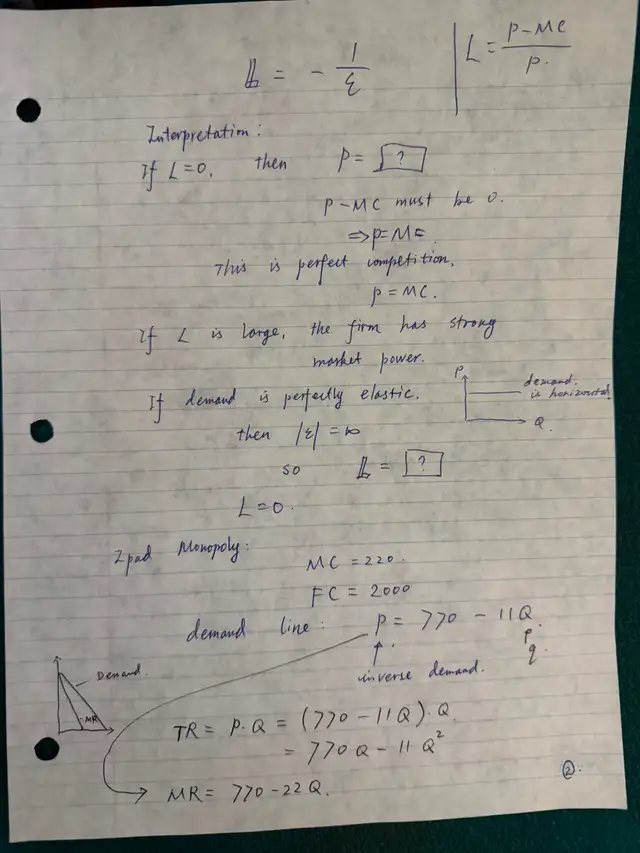 L = - 1/ε
L = P-MC/P.
Interpretation:
If L=0, then P= ?
P-MC must be 0.
⇒P=MC.
This is perfect competition,
P=MC.
If L is large, the firm has strong
market power.
If demand is perfectly elastic.
then |ε|=∞
P
demand.
is horizontal
Q.
so L = ?
L=0.
Ipad Monopoly:
MC=220.
FC=2000
demand line: P=770-11Q.
P
q.
inverse demand.
Demand.
MR
TR= P.Q = (770-11Q).Q.
= 770Q-11Q²
MR= 770-22Q.
②.